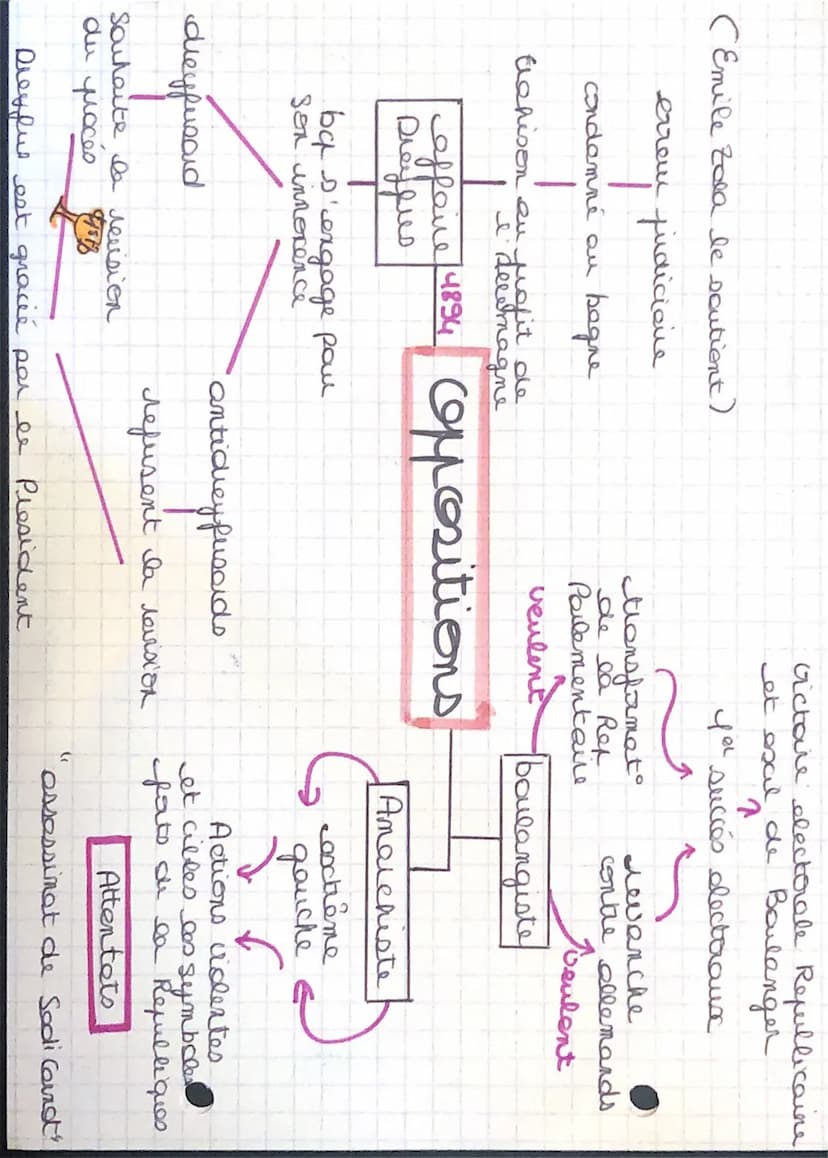 (Emile Zola le soutient)
erreur judiciaire
condamné au bagne
trahison au profit de
l'Allemagne
affaire
Dreyfus
1894
bcp s'engage pour
son innocence
dreyfusard
souhaite la revision
du procès
antidreyfusards
refusent la revision
Dreyfus est gracié par le President
Oppositions
victoire electorale Republicaine
et exil de Boulanger
1er succès electoraux
transformat°
de la Rep
Parlementaire
veulent
revanche
contre allemands
veulent
boulangiste
Anarchiste
extrême
gauche
Actions violentes
et cibles les symboles
forts de la Republiques
Attentats
"assassinat de Sadi Carnot"